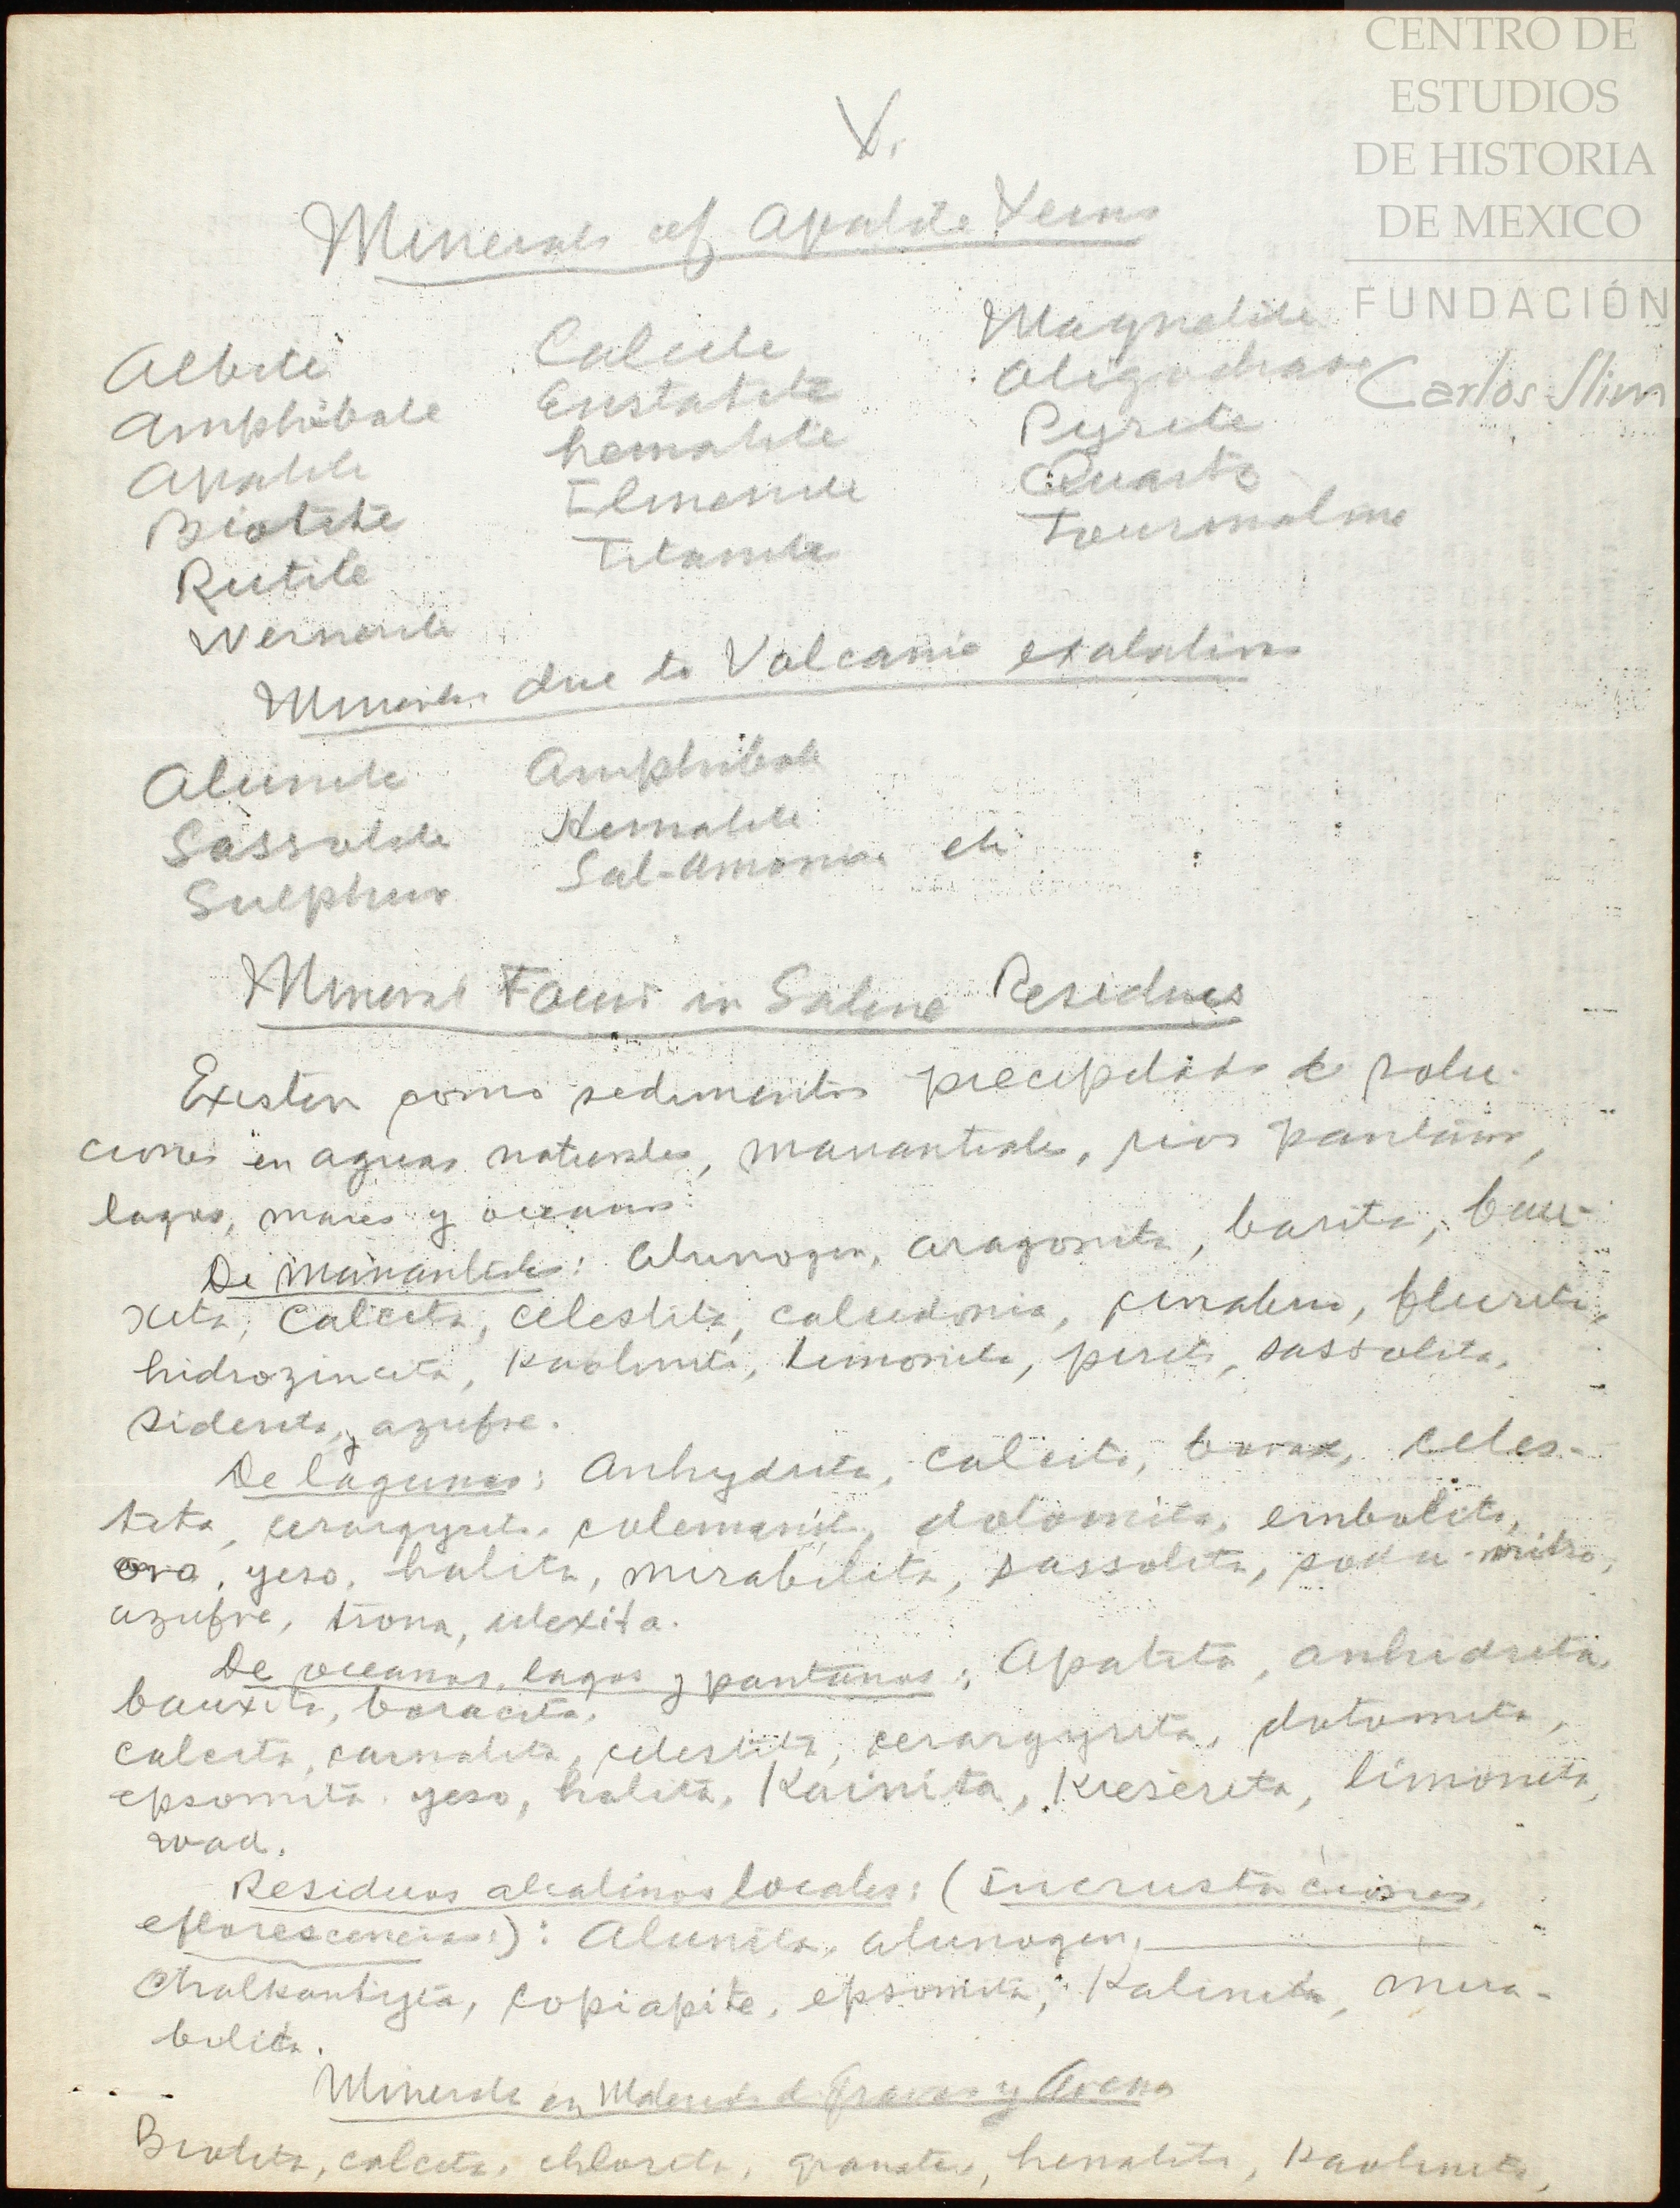 CENTRO DE
ESTUDIOS
DE HISTORIA
DE MEXICO
FUNDACIÓN
Carlos Slim
V.
Minerals of Apatite Veins
Albite Calcite Magnetite
Amphibole Enstatite Oligoclase
Apatite hematite Pyrite
Biotite Ilmenite Quartz
Rutile Titanite Tourmaline
Wernerite
Minerals due to Volcanic exalations
Alunite Amphibole
Sassolite Hematite
Sulphur Sal-Amoniac etc
Mineral Found in Saline Residues
Existen como sedimentos precipitados de solu-
ciones en aguas naturales, manantiales, rios pantanos,
lagos, mares y oceanos.
De manantiales: Alunogen, aragonita, barita, bau-
xita, Calcita, celestita, calcedonia, cinabrio, fluorita,
hidrozincita, kaolinita, limonita, pirita, sassolita,
siderita, y azufre.
De lagunas: Anhydrita, calcita, borax, celes-
tita, cerargyrita, colemanita, dolomita, embolita,
oro, yeso, halita, mirabilita, sassolita, soda-nitro,
azufre, trona, ulexita.
De oceanos, lagos y pantanos: Apatita, anhidrita,
bauxita, boracita,
calcita, carnalita, celestita, cerargyrita, dolomita,
epsomita, yeso, halita, Kainita, Kieserita, limonita,
wad.
Residuos alcalinos locales: (Incrustaciones,
eflorescencias): Alunita, alunogen,
Chalkantyta, copiapite, epsomita, Kalinita, mira-
bilita.
Minerales en Materiales de Gravas y Arenas
Biotita, calcita, chlorita, granate, hematita, Kaolinita,